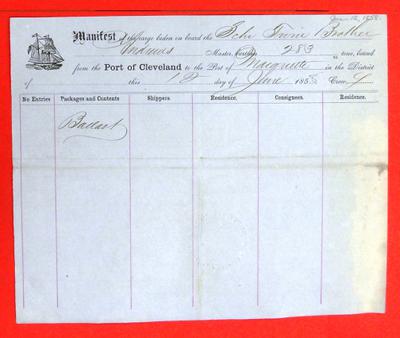 June 12, 1858
Manifest of the cargo laden on board the Schr Twin Brother
Andrews Master, burthen 283 tons, bound
from the Port of Cleveland to the Port of Marquette in the District
of this 12 day of June 185 Crew
No Entries Packages and Contents Shippers. Residence, Consignees. Residence.
Ballast